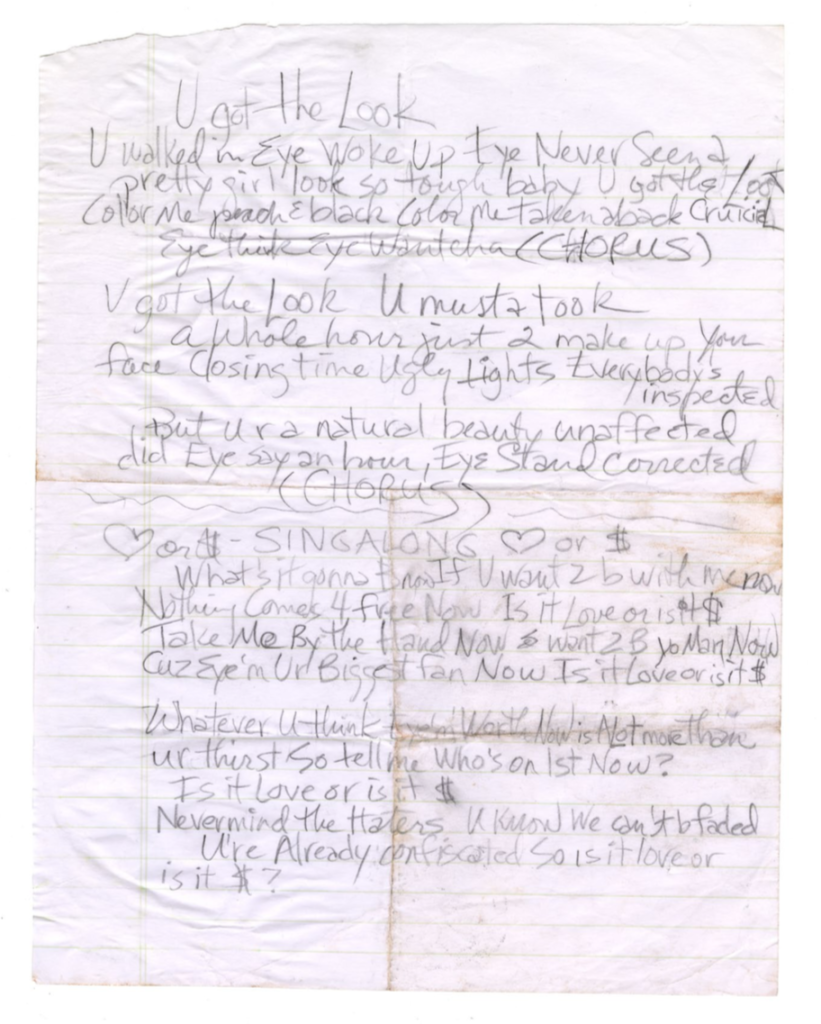 U got the Look
U walked in Eye Woke Up Eye Never Seen a
pretty girl look so tough baby U got the Look
Color Me peach & black Color Me taken aback Crucial
Eye think Eye Wantcha (CHORUS)
U got the Look U musta took
a Whole hour just 2 make up Your
face Closing time Ugly Lights Everybody's
inspected
But U r a natural beauty unaffected
did Eye say an hour, Eye Stand Corrected
(CHORUS)
♡ or $ - SINGALONG ♡ or $
What's it gonna b now If U want 2 b with me now
Nothing Comes 4 free Now Is it Love or is it $
Take Me By the Hand Now want 2 B yo Man Now
Cuz Eye'm Ur Biggest fan Now Is it Love or is it $
Whatever U think Worth Now is Not more than
ur thirst So tell me Who's on 1st Now?
Is it Love or is it $
Nevermind the Haters U Know We can't b faded
U're Already confiscated So is it love or
is it $?